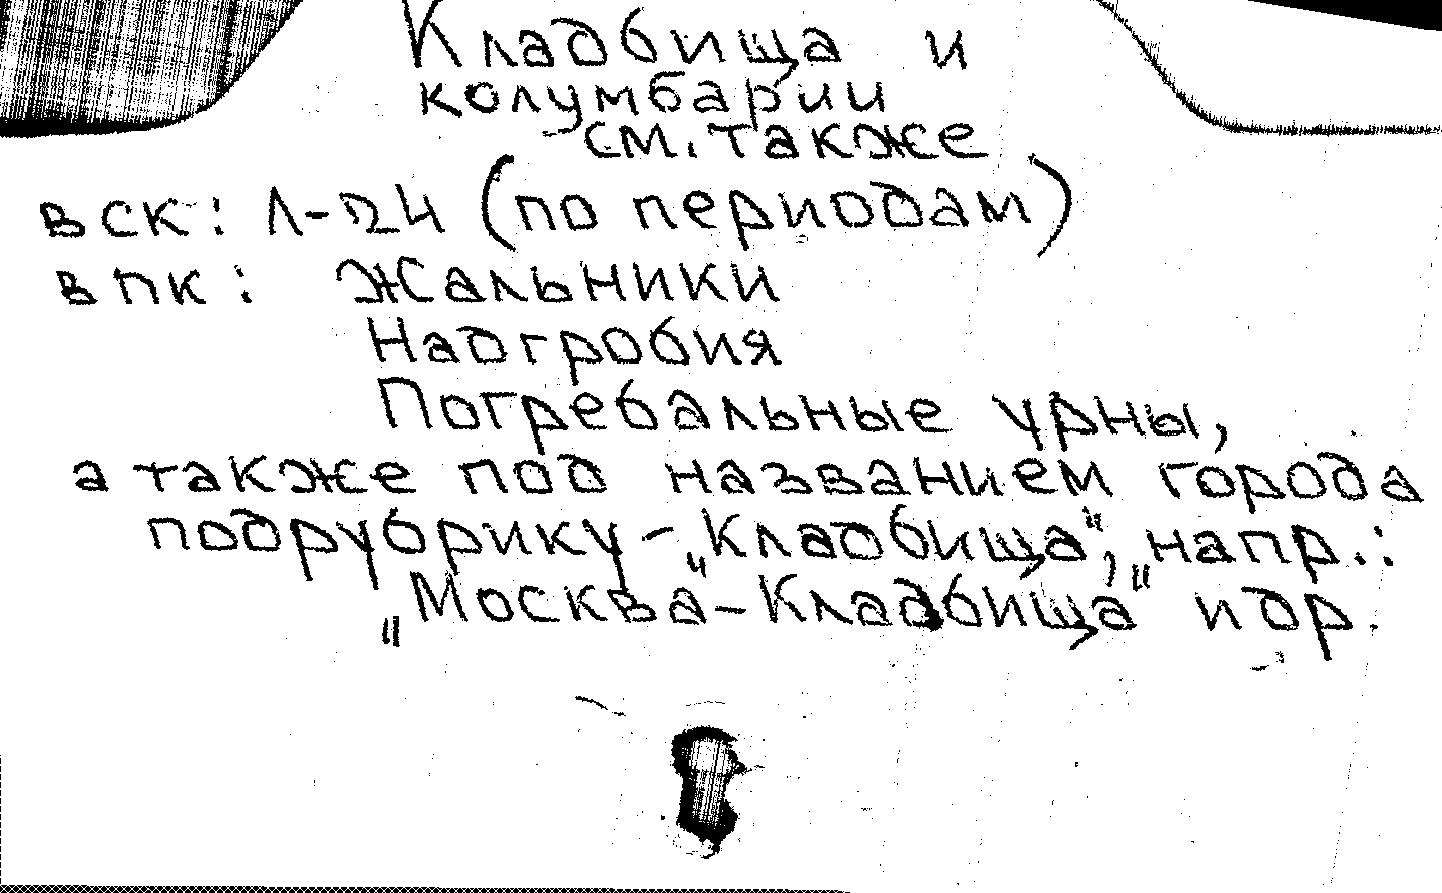 Кладбища и
колумбарии
см. также
в СК: Л-24 (по периодам)
в ПК: Жальники
Надгробия
Погребальные урны,
а также под названием города
подрубрику - „Кладбища", напр.:
„Москва - Кладбища" и др.